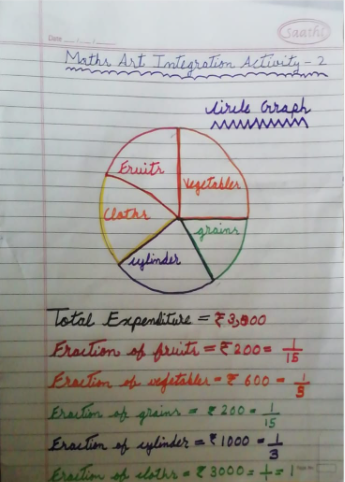 Saathi
Maths Art Integration Activity - 2
Circle Graph
Fruits
Vegetables
Cloths
grains
cylinder
Total Expenditure = ₹3,000
Fraction of fruits = ₹200 = 1/15
Fraction of vegetables = ₹600 = 1/5
Fraction of grains = ₹200 = 1/15
Fraction of cylinder = ₹1000 = 1/3
Fraction of cloths = ₹3000 = 1 = 1